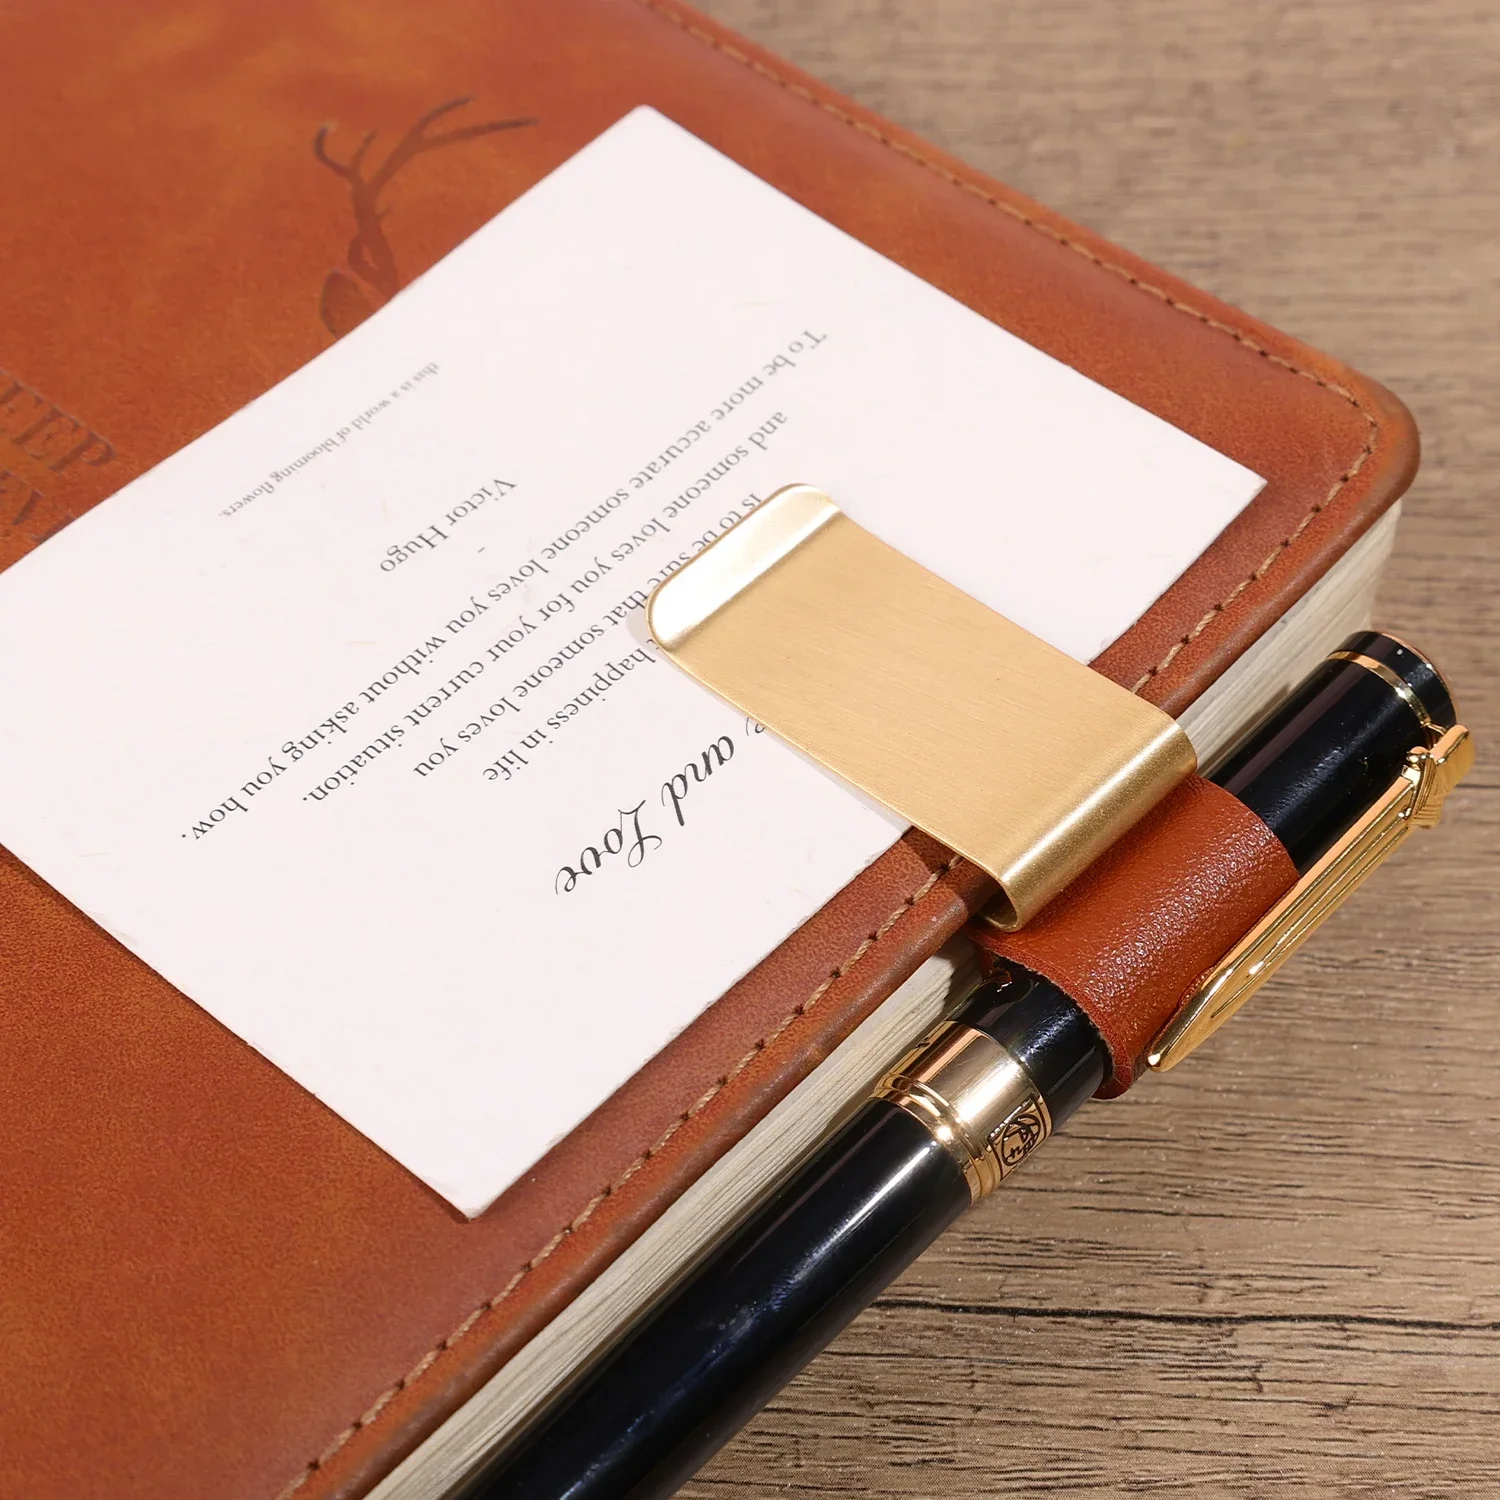 and Love
happiness in life
Is to be sure that someone loves you
and someone loves you for your current situation.
To be more accurate someone loves you without asking you how.
Victor Hugo
this is a world of blooming flowers.
EEP